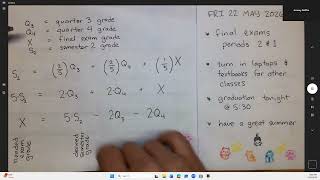 Q₃ = quarter 3 grade
Q₄ = quarter 4 grade
X = final exam grade
S₂ = semester 2 grade
S₂ = (2/5)Q₃ + (2/5)Q₄ + (1/5)X
5·S₂ = 2·Q₃ + 2·Q₄ + X
X = 5·S₂ - 2Q₃ - 2Q₄
needed exam grade
desired semester grade
FRI 22 MAY 2026
• final exams periods 2 & 1
• turn in laptops & textbooks for other classes
• graduation tonight @ 5:30
• have a great summer